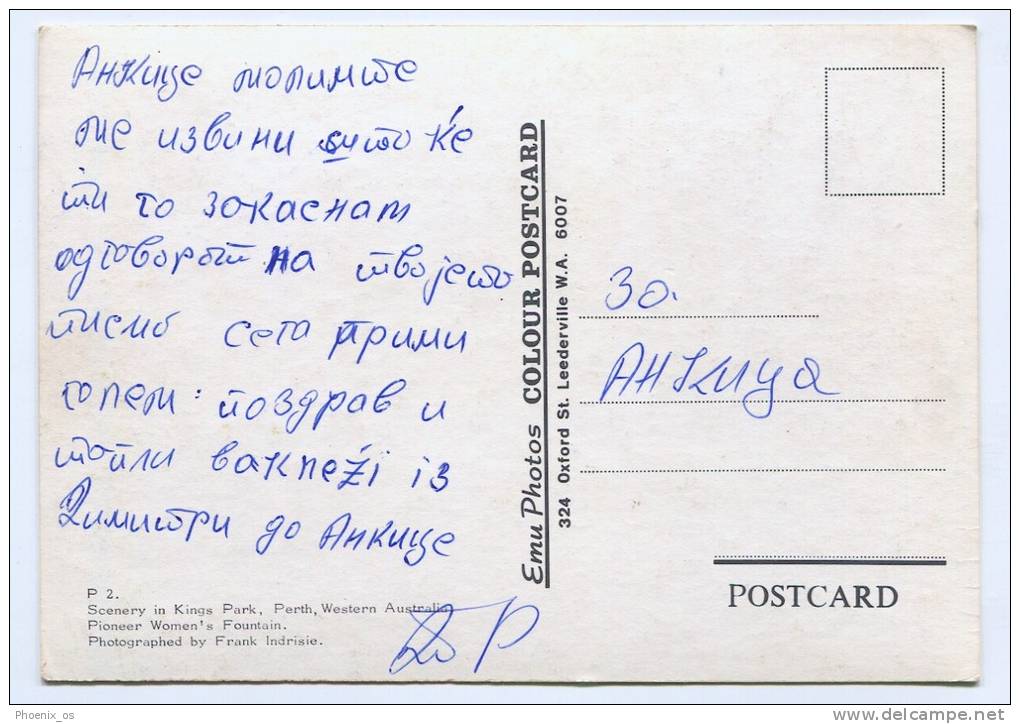 Анкице молимте
ме извини што ќе
ти го закаснам
одговорот на твојето
писмо сега прими
голем поздрав и
топли бакнежі із
Димитри до Анкице
P 2.
Scenery in Kings Park, Perth, Western Australia.
Pioneer Women's Fountain.
Photographed by Frank Indrisie.
Emu Photos COLOUR POSTCARD
324 Oxford St. Leederville W.A. 6007
За.
Анкица
POSTCARD
Phoenix_os
delcampe.net